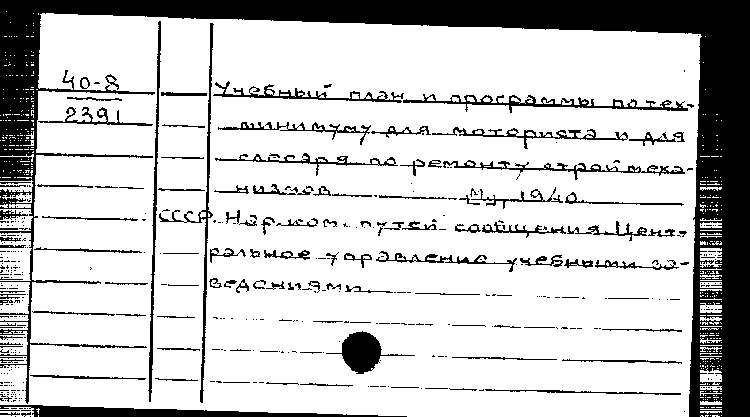 40-8
2391
Учебный план и программы по тех-
минимуму для моториста и для
слесаря по ремонту строймеха-
низмов. М., 1940.
СССР. Нар. ком. путей сообщения. Цент-
ральное управление учебными за-
ведениями.